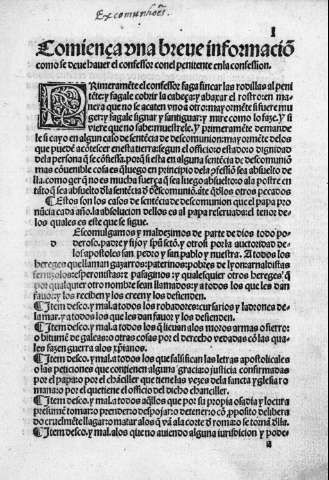 Excomuniões.
I
Comiença vna breue informaciõ
como se deue hauer el confessor conel penitente enla confession.
PRimeramẽte el confessor faga fincar las rodillas al peni
tẽte: y fagale cobrir la cabeça: y abaxar el rostro: en ma
nera que no se acatẽ vno a otro: mayormẽte si fuere mu
ger: fagale signar y santiguar: y mire como lo faze. Y si
viere que no sabe: muestrele. Y primeramẽte demande
le si cayo en algun caso de sentẽcia de descomunion: mayormẽte delos
que puede acõtescer enesta tierra: segun el officio: o estado: o dignidad
dela persona q̃ se cõfiessa. porq̃ si esta en alguna sentẽcia de descomuniõ
mas cõuenible cosa es q̃ luego en principio dela cõfessiõ sea absuelto de
lla. como quer q̃ no es mucha fuerça q̃ sea luego absuelto: o ala postre en
tãto q̃ sea absuelto dla sentẽcia d̃ descomuniõ. ãte q̃ dlos otros pecados
¶ Estos son los casos de sentẽcia de descomunion que el papa pro
nũcia cada año. la absolucion dellos es al papa reseruada: el tenor de
los quales es este que se sigue.
Escomulgamos y maldezimos de parte de dios todo po
deroso. padre y fijo y spũ sctõ. y otrosi por la auctoridad de
los apostoles san pedro y san pablo y nuestra. A todos los
hereges que llaman gazarros: patarinos: pobres de leon: arnaldistas
speronistas: passaginos: y qualesquier otros hereges q̃
por qualquier otro nombre sean llamados: y a todos los que les dan
fauor: y los reciben y los creen y los defienden.
¶ Item desco. y mal. a todos los robadores: cursarios y ladrones de
la mar. y a todos los que les dan fauor y los defienden.
¶ Item desco. y mal. a todos los q̃ lieuan alos moros armas o fierro:
o bitumẽ de galeas: o otras cosas por el derecho vedadas cõ las qua
les fazen guerra alos xp̃ianos.
¶ Item desco. y mal. a todos los que falsifican las letras apostolicales
o las peticiones que contienen alguna gracia: o justicia confirmadas
por el papa: o por el chãceller que tiene las vezes dela sancta yglesia ro
mana: o por el que tiene el officio del dicho chanciller.
¶ Item desco. y mal. a todos aq̃llos que por su propia osadia y locura
presumẽ tomar: o prender: o despojar: o detener: o cõ p̃posito delibera
do cruelmẽte llagar: o matar alos q̃ vã ala corte d̃ roma: o se tornã d̃lla.
¶ Item desco. y mal. alos que no auiendo alguna iurisdicion y pode-
a